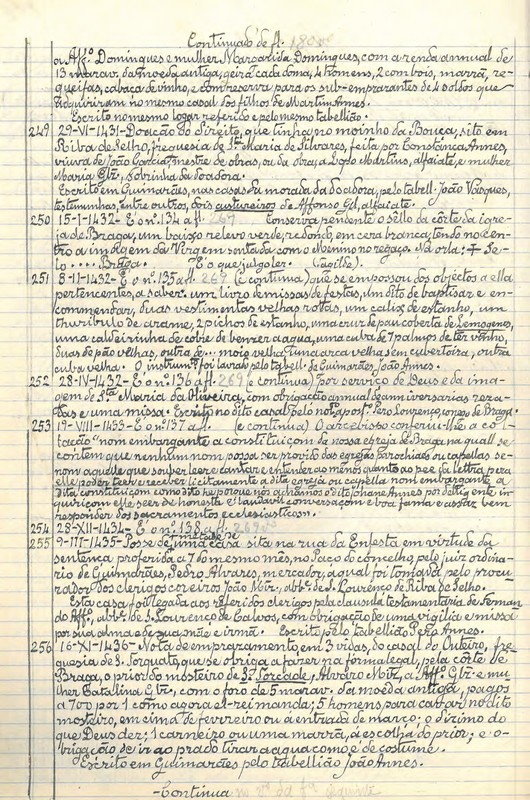 Continuado de fl. 180vº
a Affº. Domingues e mulher Margarida Domingues, com a renda annual de
13 marav. da moeda antiga, geira cada doma, 4 homens, 2 com bois, marrã, re-
queifas, cabaça de vinho, e com reserva para os sub-emprazantes de 4 soldos que
adquiriram no mesmo casal dos filhos de Martim Annes.
Escrito no mesmo logar referido e pelo mesmo tabellião.
249 29-VI-1431-Doação do direito, que tinha no moinho da Bouça, sito em
Riba de Selho, freguesia de Stª Maria de Silvares, feita por Constança Annes,
viuva de João Garcia, mestre de obras, ou da obra, a Lopo Martins, alfaiate, e mulher
Maria Glz, sobrinha da doadora.
Escrito em Guimarães, nas casas da morada da doadora, pelo tabell. João Vasques,
testemunhas, entre outros, dois custureiros de Affonso Gil, alfaiate.
250 15-I-1432-E o nº. 134 a fl. 267 Conserva pendente o sêllo da côrte da igre-
ja de Braga, um baixo relevo verde, redondo, em cera branca, tendo no cen-
tro a imagem da Virgem sentada com o Menino no regaço. Na orla: + Se-
lo.... Braga. E o que julgo ler.
251 8-II-1432-E o nº. 135 a fl. 267 (e continua) que se empossou dos objectos a ella
pertencentes, a saber: um livro de missas de festas, um dito de baptisar e en-
commendar, duas vestimentas velhas rottas, um calix de estanho, um
thuribulo de arame, 2 pichos de estanho, uma cruz de pau coberta de Lemogenes,
uma caldeirinha de cobre de benzer a agua, uma cuba de 7 palmos de ter vinho,
duas de pão velhas, outra de... moio velha, uma arca velha sem cubertoira, outra
cuba velha. O instrumº. foi lavrado pelo tabell. de Guimarães João Annes.
252 28-IV-1432-E o nº. 136 a fl. 269 (e continua) por serviço de Deus e da ima-
gem de Stª Maria da Oliveira, com obrigação annual de anniversarias reza-
das e uma missa. Escrito no dito casal pelo notº. apostº. Pero Lourenço, conego de Braga.
253 19-VIII-1433-E o nº. 137 a fl. (e continua) O arcebispo conferiu-lhe a co-
llação "nom embargante a constituiçom da nossa egreja de Braga na qual se
contem que nenhum nom possa ser provido das egrejas parochiaes ou capellas se-
nom aquelle que souber leer e cantar e entender ao menos quanto ao pee da lettra pera
elle poder teer e receber licitamente a dita egreja ou capella nom embargante a
dita constituiçom como dito he porque nós achamos o dito Johane Annes por diligente in-
quiriçom elle ser de honesta e laudavil conversaçom e boa fama e usar bem
responder dos sacramentos ecclesiasticos".
254 28-XII-1434-E o nº. 138 a fl. 269vº
255 9-III-1435-Posse de metade de uma casa sita na rua da Enfesta em virtude da
sentença proferida a 7 do mesmo mês, no Paço do concelho, pelo juiz ordina-
rio de Guimarães, Pedro Alvares, mercador, a qual foi tomada pelo procu-
rador dos clerigos coreiros João Moir, abbº. de S. Lourenço de Riba de Selho.
Esta casa foi legada aos referidos clerigos pela clausula testamentaria de Fernan-
do Affº., abbº. de S. Lourenço de Calvos, com obrigação de uma vigilia e missa
por sua alma e de sua mãe e irmã. Escrito pelo tabellião Pero Annes.
256 16-XI-1436-Nota de emprazamento em 3 vidas, do casal do Outeiro, fre-
guesia de S. Torquato, que se obriga a fazer na forma legal, pela côrte de
Braga, o prior do mosteiro de S. Torcade, Alvaro Moiz, a Affº. Glz e mu-
lher Catalina Glz, com o foro de 5 marav. da moeda antiga, pagos
a 700 por 1 como agora el-rei manda; 5 homens para cavar no dito
mosteiro, em cima de fevereiro ou a entrada de março; o dizimo do
que Deus der; 1 carneiro ou uma marrã, á escolha do prior; e o-
brigação de ir ao prado tirar a agua como é de costume.
Escrito em Guimarães pelo tabellião João Annes.
-Continua no vº da fª seguinte